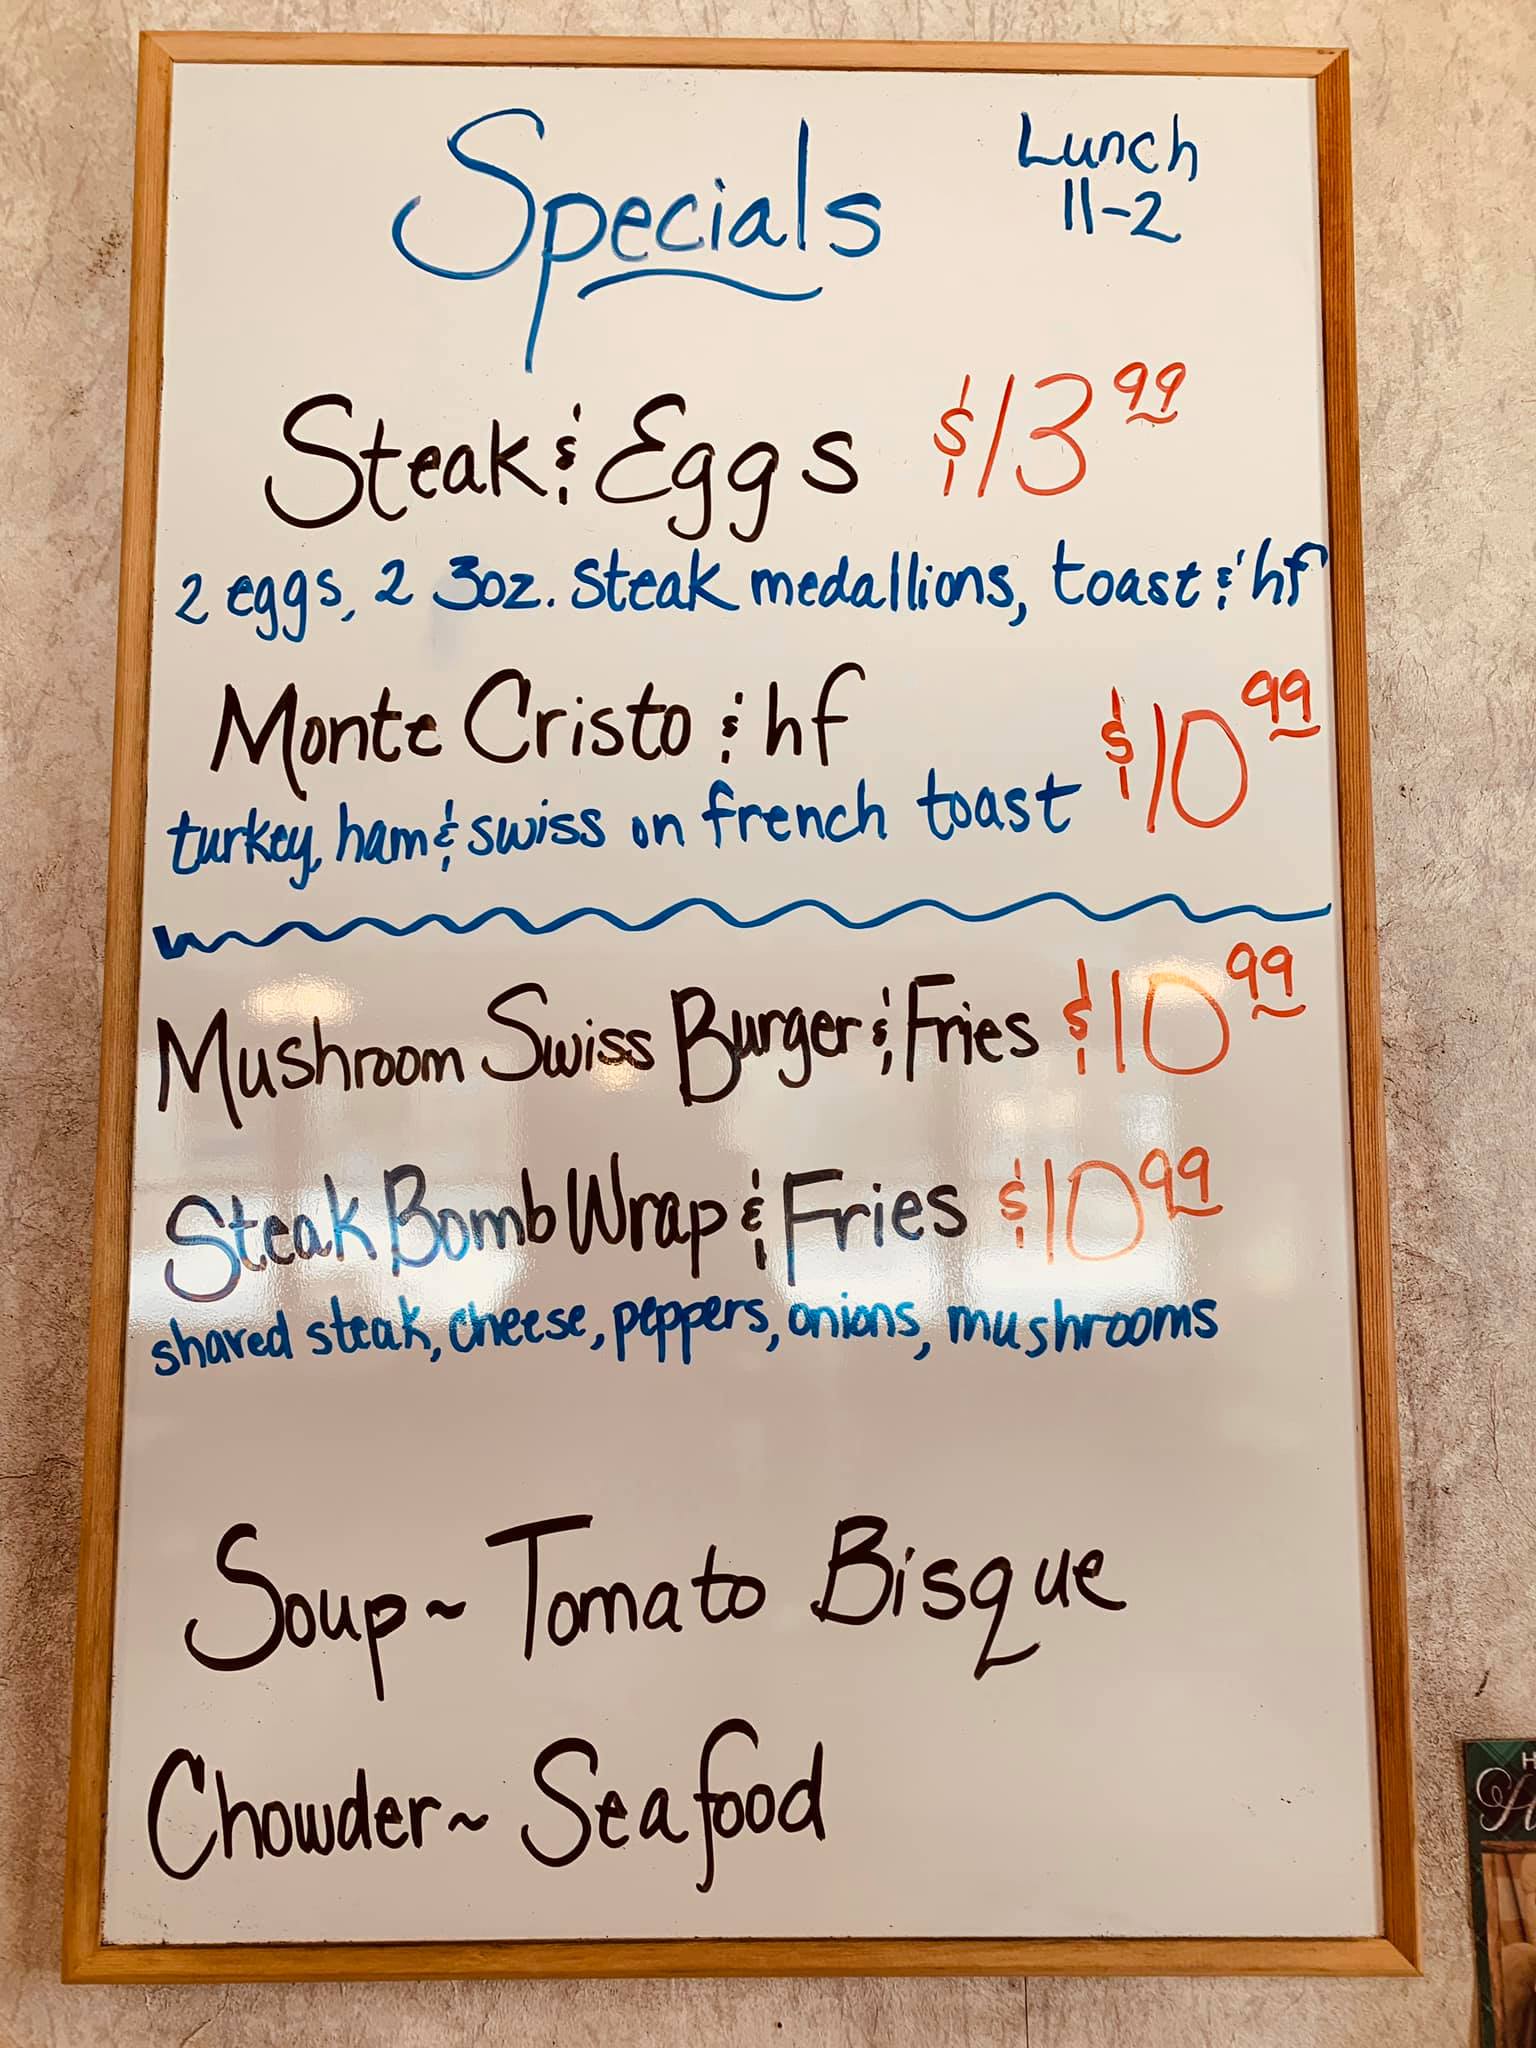 Specials
Lunch
11-2
Steak & Eggs $13.99
2 eggs, 2 3oz. steak medallions, toast & hf
Monte Cristo & hf $10.99
turkey, ham & swiss on french toast
Mushroom Swiss Burger & Fries $10.99
Steak Bomb Wrap & Fries $10.99
shaved steak, cheese, peppers, onions, mushrooms
Soup~ Tomato Bisque
Chowder~ Seafood